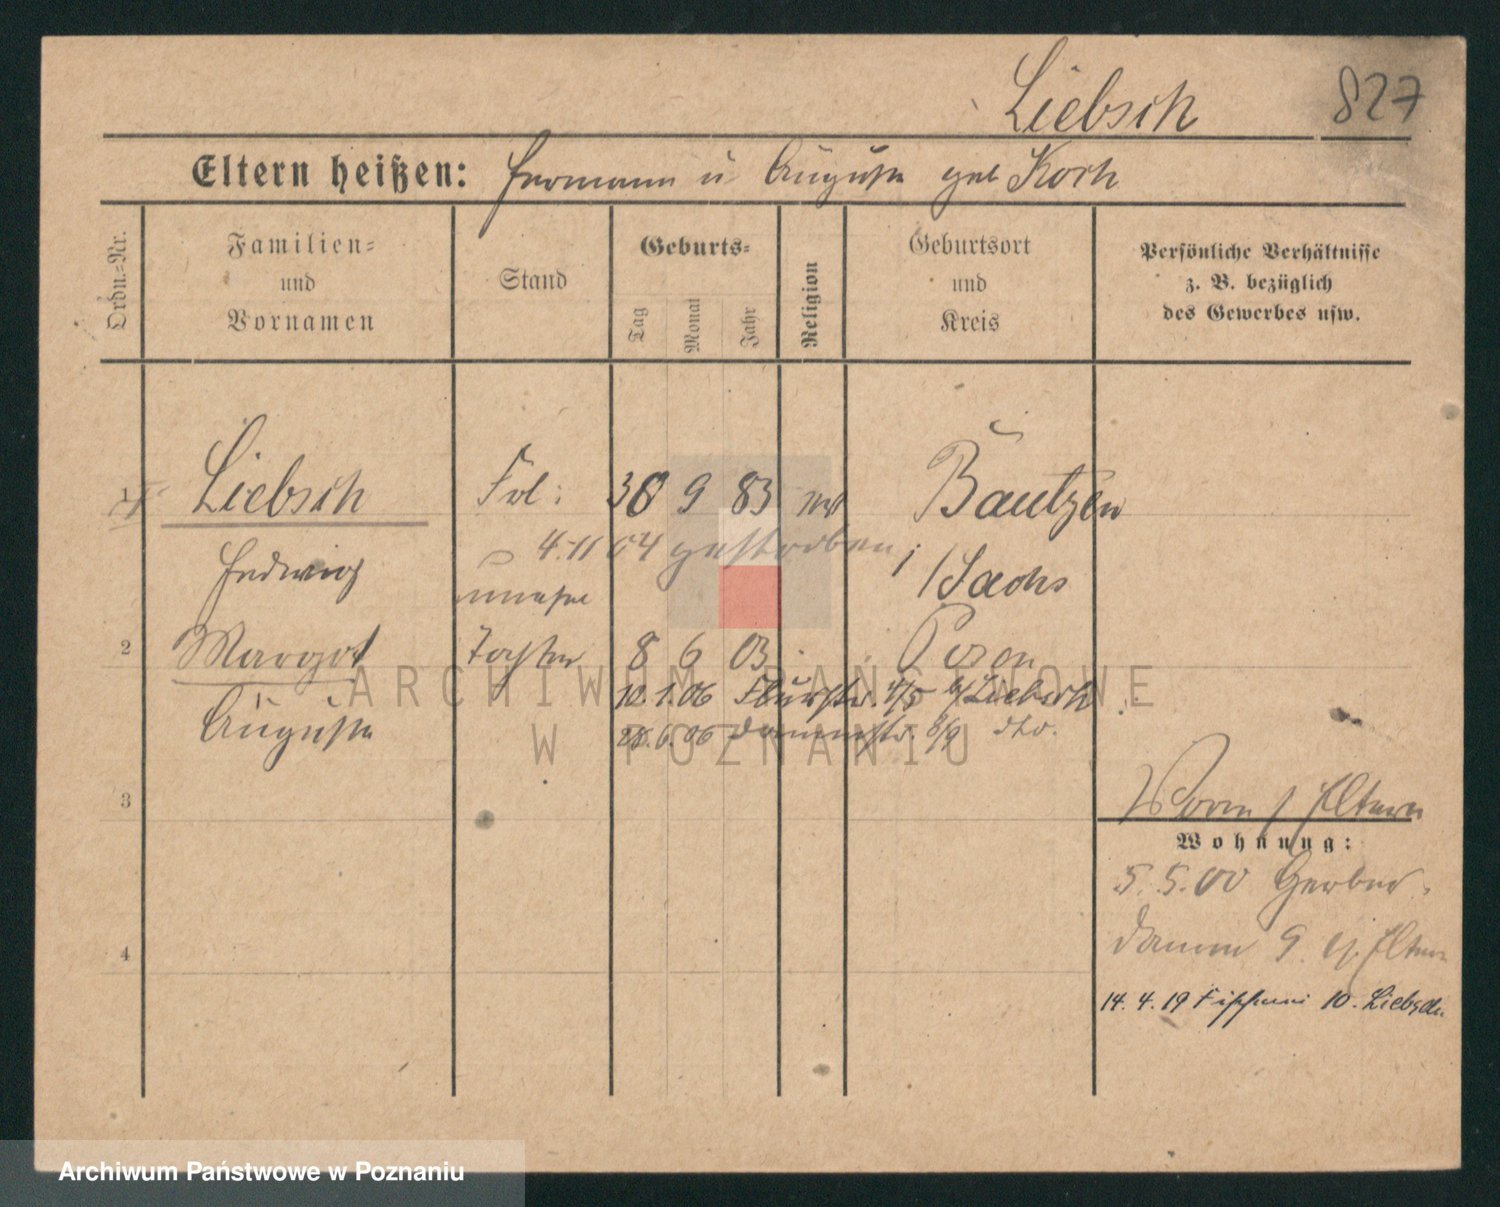 Liebsch 827
Eltern heißen: Hermann u Auguste geb Koch
Ordn.=Nr.
Familien=
und
Vornamen
Stand
Geburts=
Tag
Monat
Jahr
Religion
Geburtsort
und
Kreis
Persönliche Verhältnisse
z. B. bezüglich
des Gewerbes usw.
1 Liebsch Frl: 30 9 83 Bautzen
4. 11 04 gestorben
Hedwig unehe /Sachs
2 Margot Tochter 8 6 03 Posen
Auguste 10.1.06 4/5 b/Liebsch
28.6.06 Dammstr. 8/9 dto.
3
Vorm / Eltern
Wohnung:
5. 5. 00 Gerber
4
damm 9 Eltern
14. 4. 19 10. Liebsch
ARCHIWUM PAŃSTWOWE
W POZNANIU
Archiwum Państwowe w Poznaniu